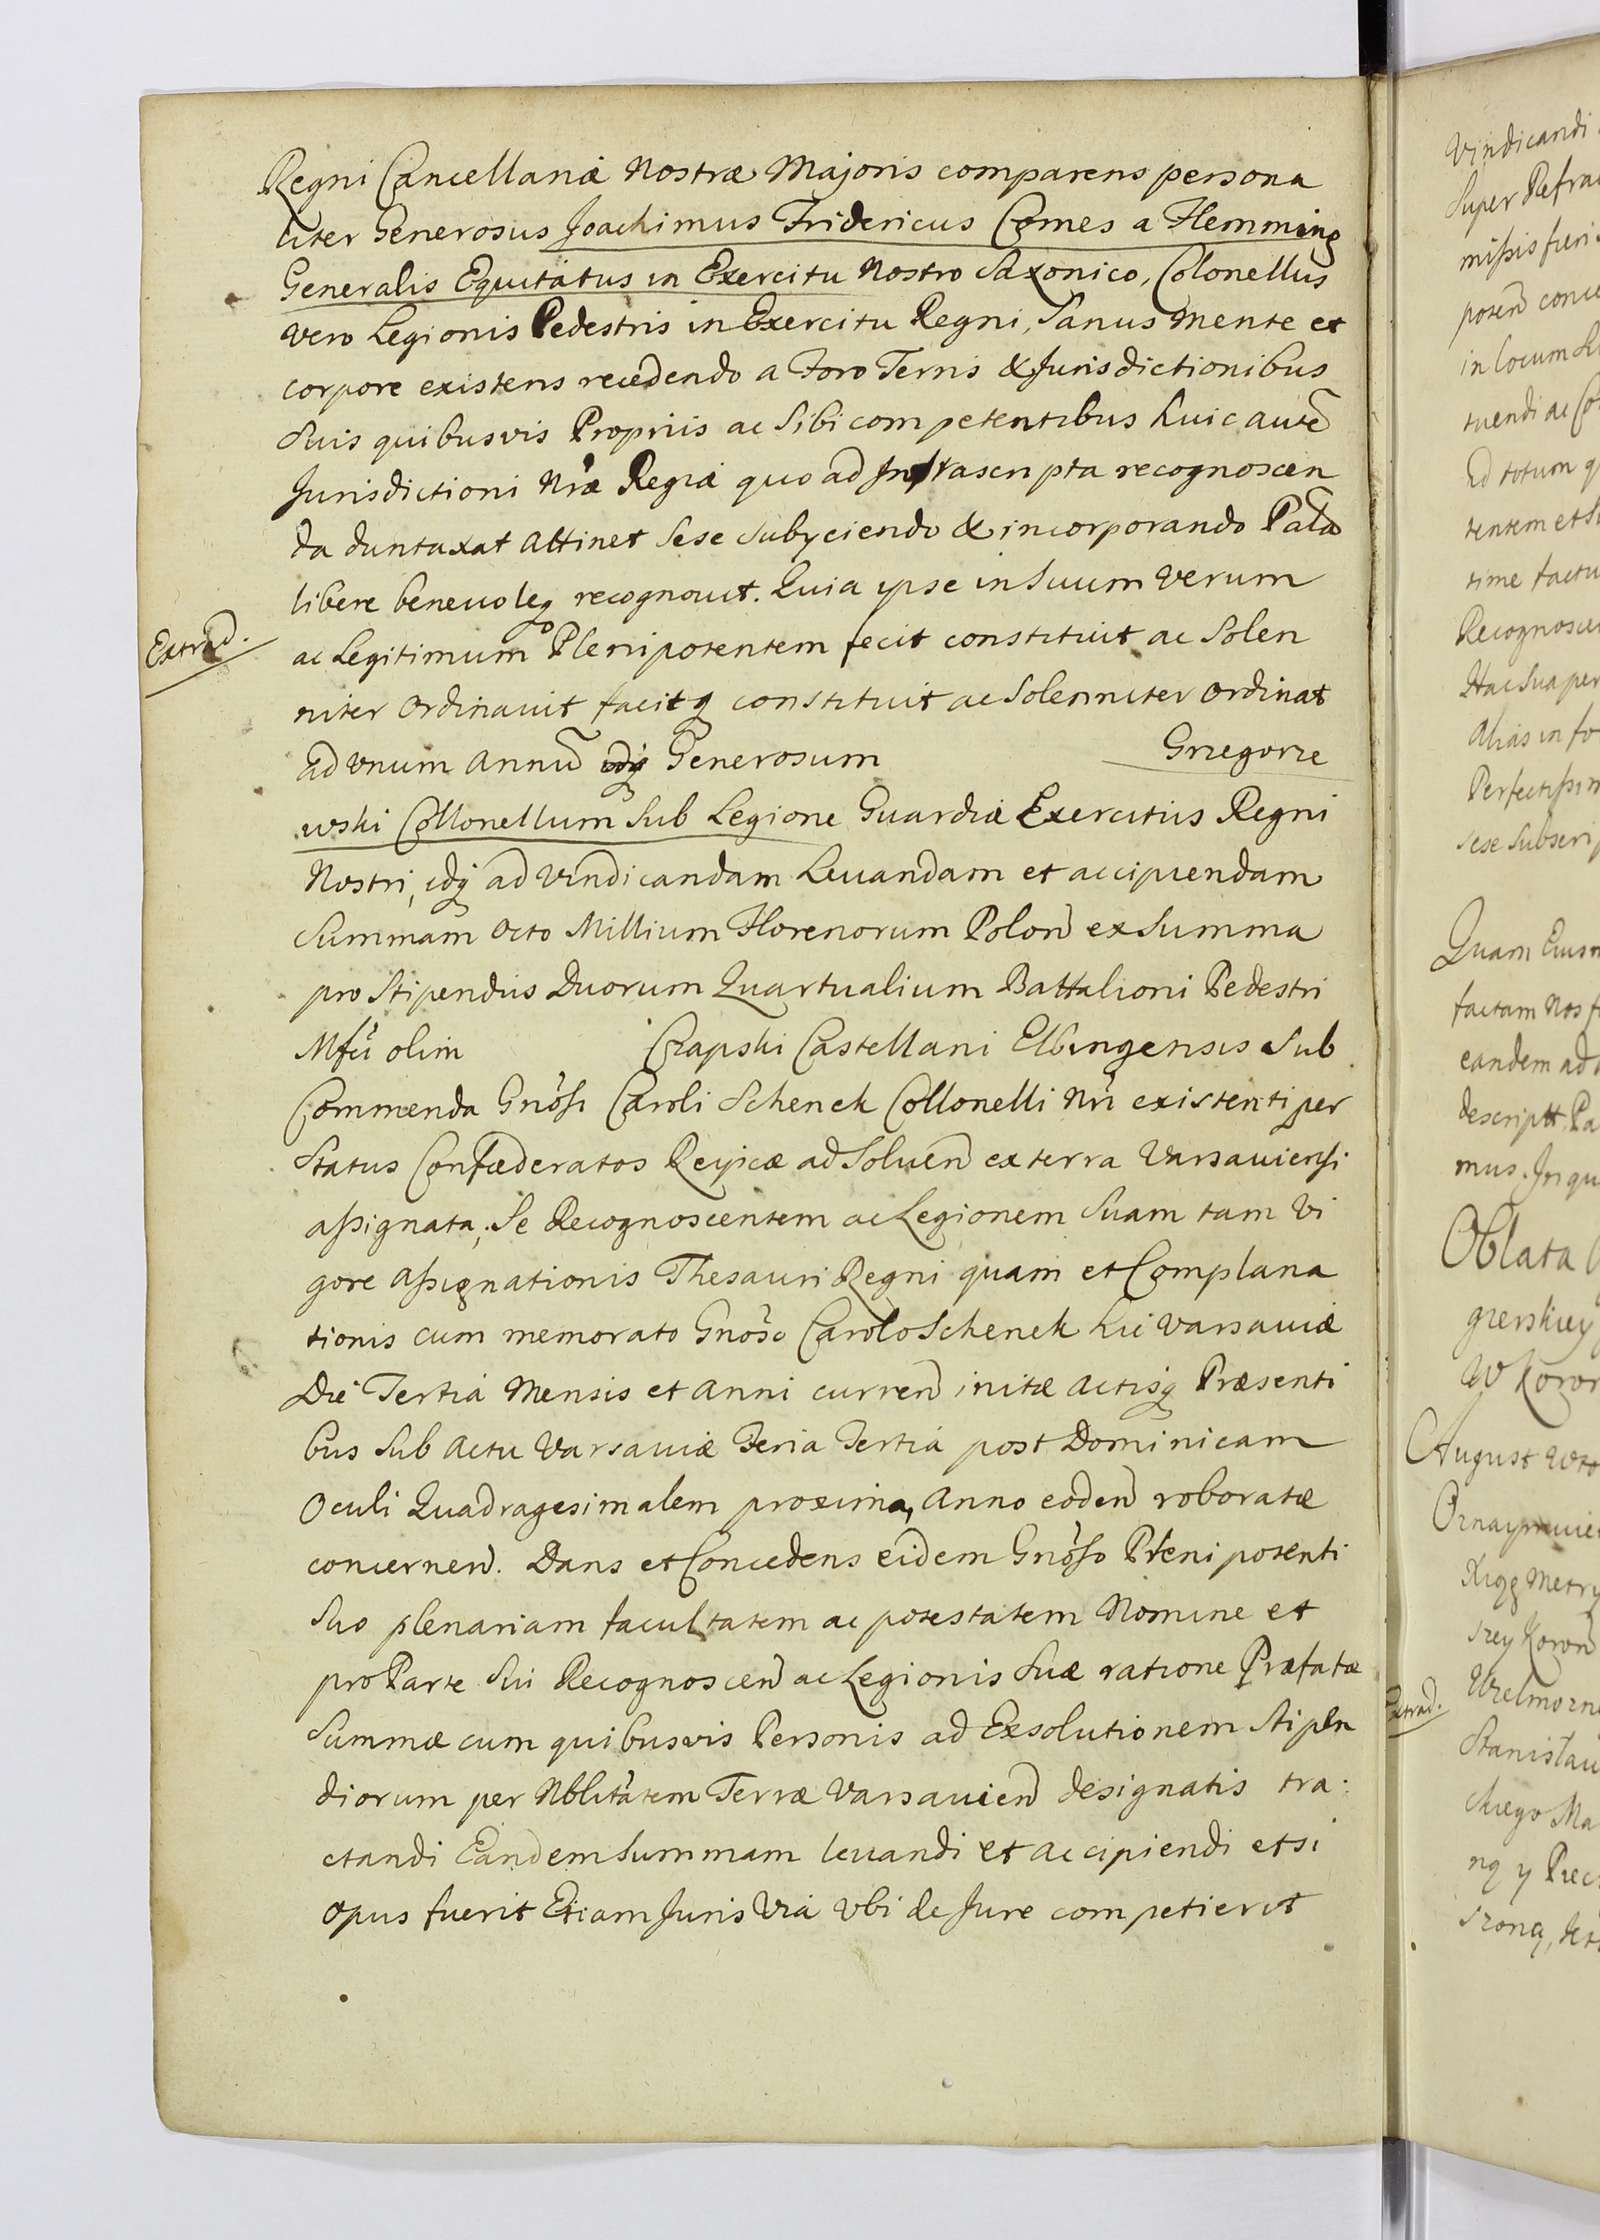 Regni Cancellariæ Nostræ Majoris comparens persona
liter Generosus Joachimus Fridericus Comes a Flemming
Generalis Equitatus in Exercitu Nostro Saxonico, Colonellus
vero Legionis Pedestris in Exercitu Regni, Sanus mente et
corpore existens recedendo a Foro Terris & Jurisdictionibus
Suis quibusvis Propriis ac Sibi competentibus huic autē
Jurisdictioni Nræ Regiæ quo ad Infrascripta recognoscen
da duntaxat attinet sese subyciendo & incorporando Palā
libere beneuoleq recognouit. Quia ipse in Suum Verum
Extrad.
ac Legitimum Plenipotentem fecit constituit ac Solen
niter Ordinavit facitq constituit ac Solenniter Ordinat
ad Vnum Annū Generosum Grzegorze
wski Collonellum Sub Legione Guardiæ Exercitus Regni
Nostri, idq ad Vindicandam Leuandam et accipiendam
Summam Octo Millium Florenorum Polon ex Summa
pro Stipendiis Duorum Quartualium Battalioni Pedestri
Mfci olim Czapski Castellani Elbingensis Sub
Commenda Gnosi Caroli Schenek Collonelli Nri existenti per
Status Confæderatos Reipcæ ad Soluen ex terra Varsauiensi
assignata, Se Recognoscentem ac Legionem Suam tam Vi
gore Assignationis Thesauri Regni quam et Complana
tionis cum memorato Gnoso Carolo Schenek hic Varsauiæ
Die Tertia Mensis et Anni curren initæ Actisq Præsenti
bus Sub Actu Varsauiæ Feria Tertia post Dominicam
Oculi Quadragesimalem proxima, Anno eodem roboratæ
concernen. Dans et Concedens eidem Gnoso Plenipotenti
Suo plenariam facultatem ac potestatem Nomine et
pro Parte Sui Recognoscen ac Legionis Suæ ratione Præfatæ
Summæ cum quibusvis Personis ad Exsolutionem Stipen
diorum per Nblitatem Terræ Varsauien designatis tra:
ctandi Eandem Summam leuandi et accipiendi et si
opus fuerit Etiam Juris Via Vbi de Jure competierit
Vindicandi
Super Refra
missis fieri
poten conce
in locum
tuendi ac
ad totum q
tentem et
time factu
Recognosce
Hac Sua per
Alias in fo
Perfectissim
sese Subscri
Quam Eius
factam Nos
eandem ad
descriptt. Pa
mus. In qu
Oblata
gierskiey
W Koron
August
Oznaymuie
Xięg Metry
szey Koron
Extrad.
Wielmozn
Stanislau
skiego Ma
ną y Piecz
szoną,